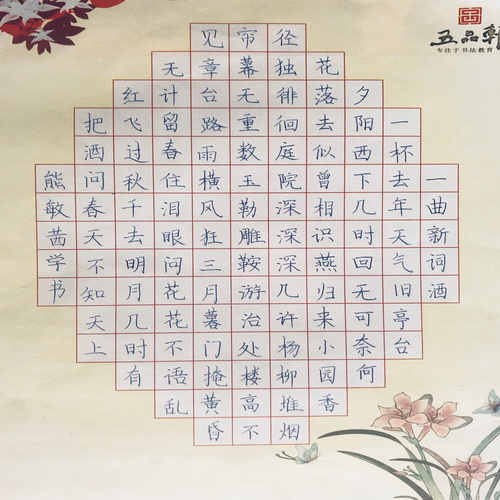 五品軒
专注于书法教育
一曲新词酒
一杯去年天气旧亭台
夕阳西下几时回无可奈何
花落去似曾相识燕归来小园香
径独徘徊庭院深深深几许杨柳堆烟
帘幕无重数玉勒雕鞍游治处楼高不
见章台路雨横风狂三月暮门掩黄昏
无计留春住泪眼问花花不语乱
红飞过秋千去明月几时有
把酒问春天不知天上
熊敏茜学书